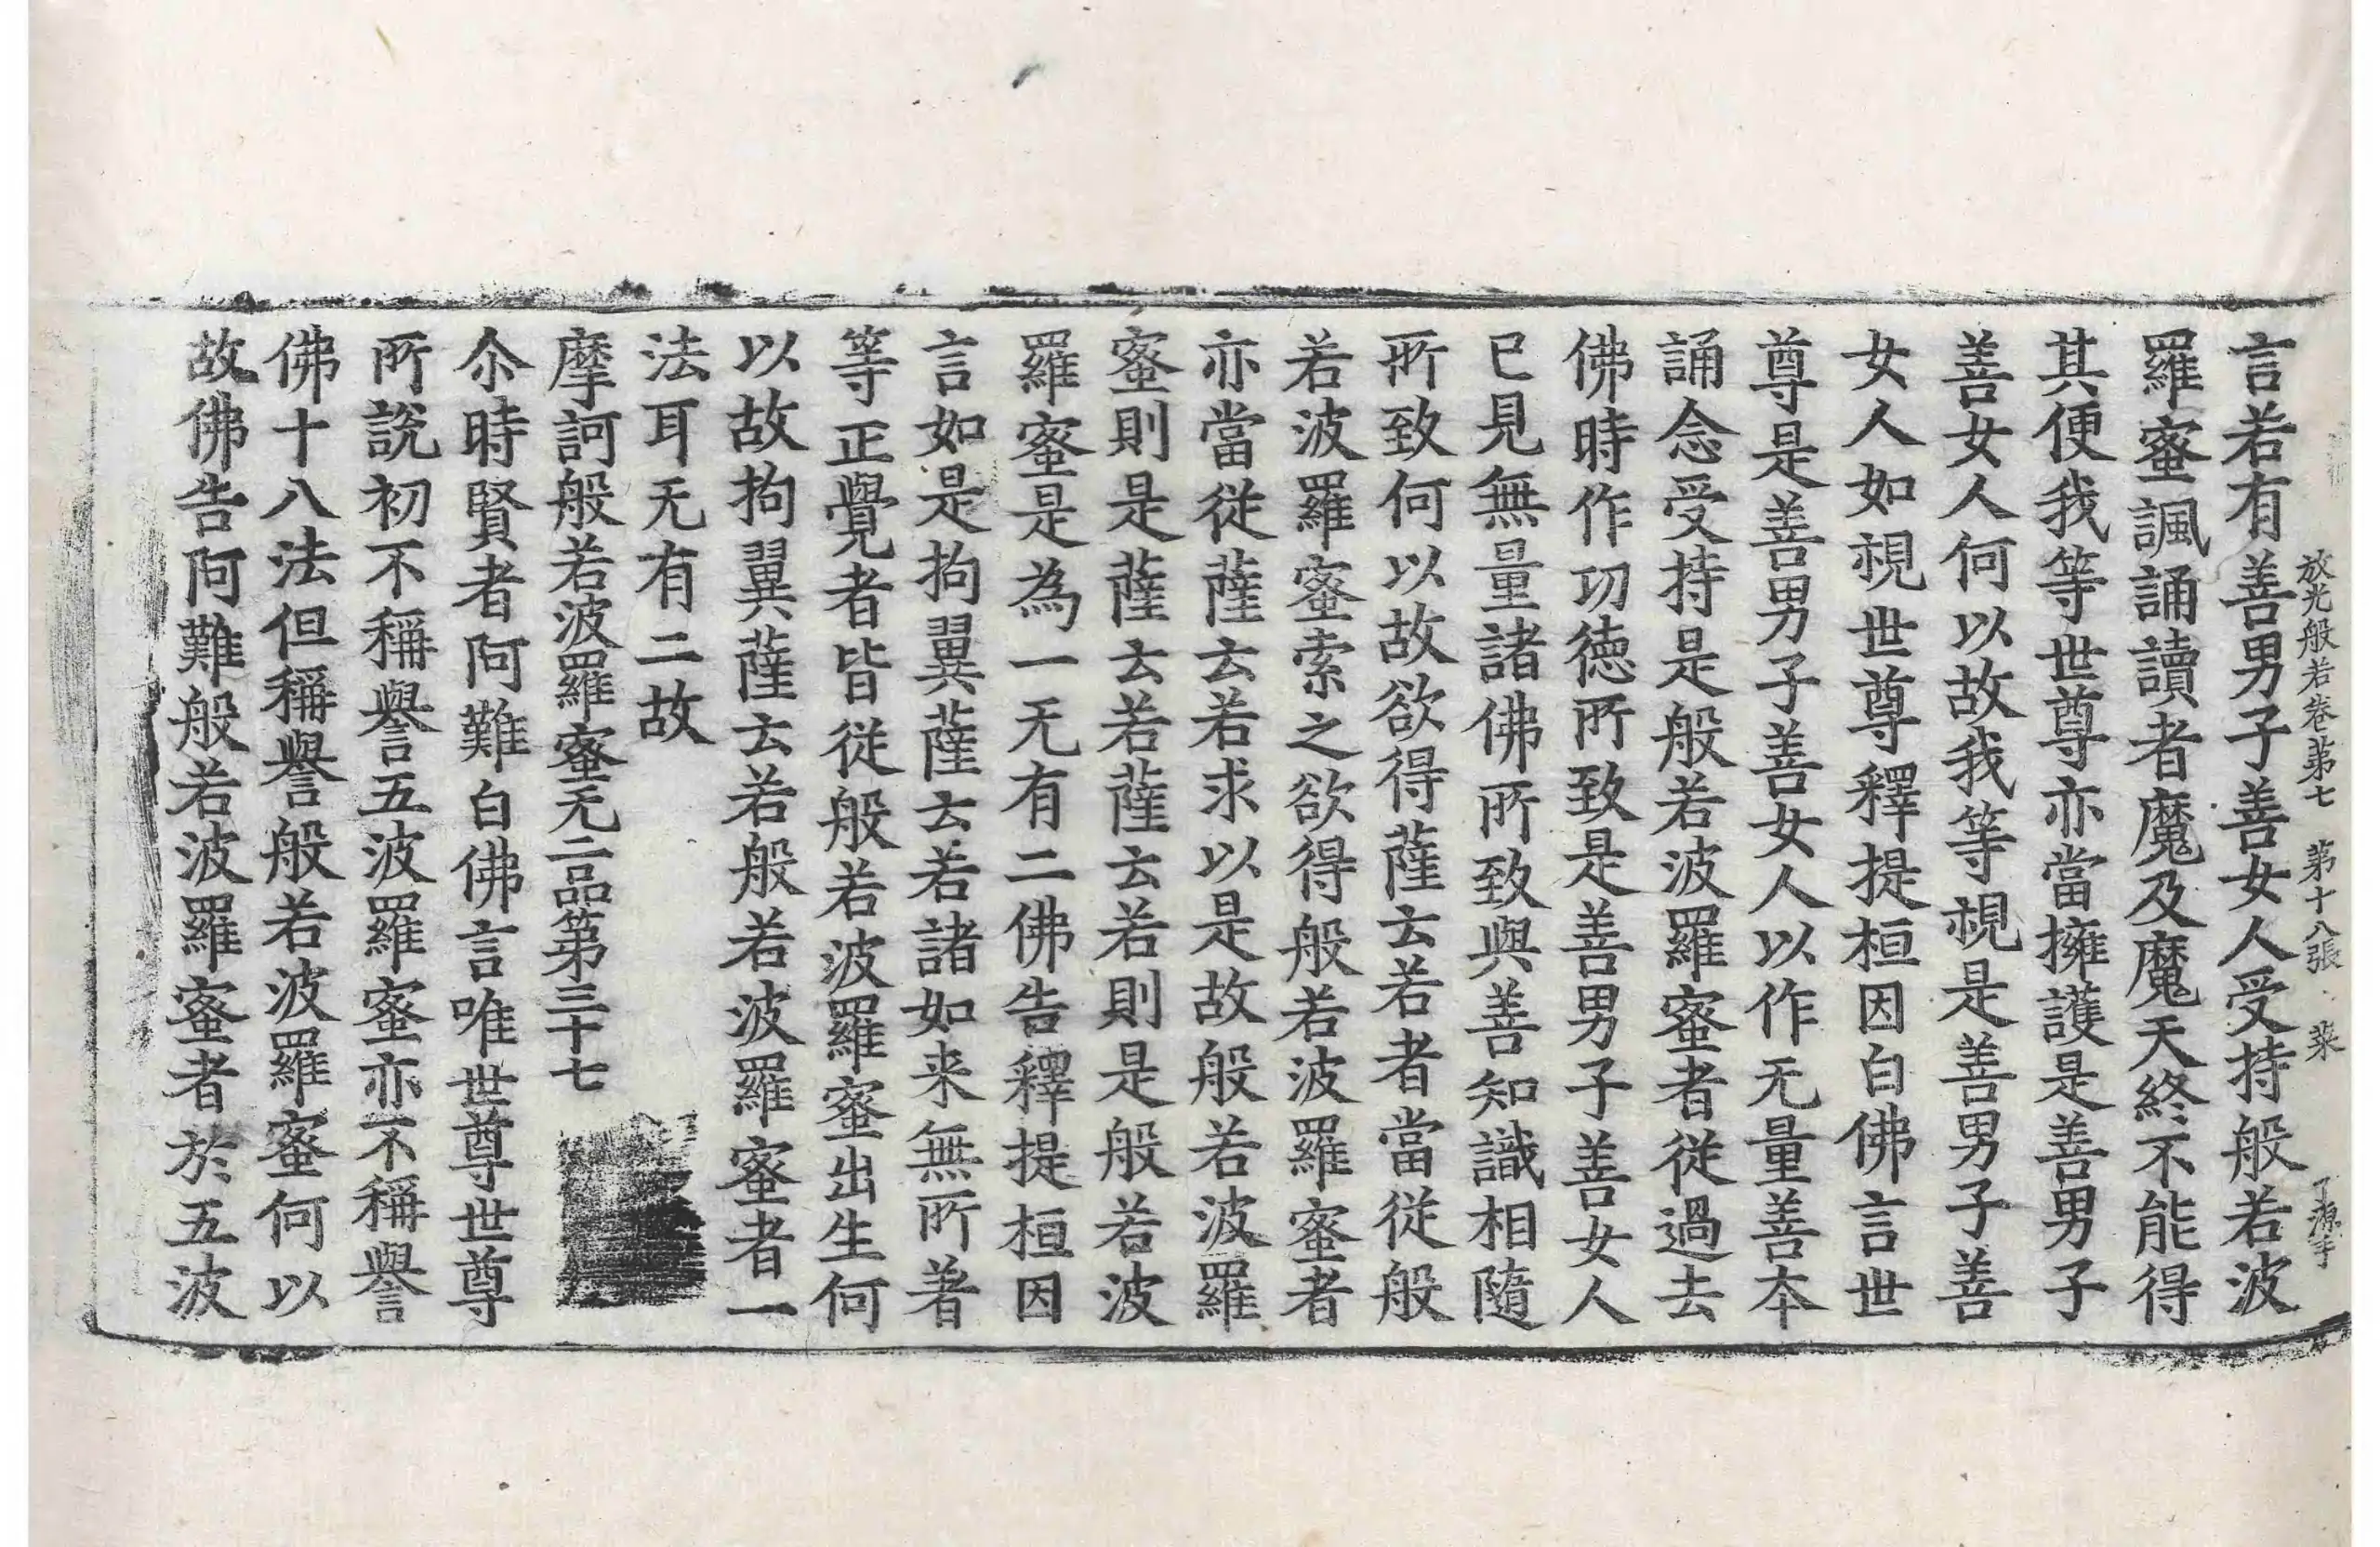 放光般若卷第七　第十八張　菜
言若有善男子善女人受持般若波
羅蜜諷誦讀者魔及魔天終不能得
其便我等世尊亦當擁護是善男子
善女人何以故我等視是善男子善
女人如視世尊釋提桓因白佛言世
尊是善男子善女人以作无量善本
誦念受持是般若波羅蜜者從過去
佛時作功德所致是善男子善女人
已見無量諸佛所致與善知識相隨
所致何以故欲得薩云若者當從般
若波羅蜜索之欲得般若波羅蜜者
亦當從薩云若求以是故般若波羅
蜜則是薩云若薩云若則是般若波
羅蜜是為一无有二佛告釋提桓因
言如是拘翼薩云若諸如来無所著
等正覺者皆從般若波羅蜜出生何
以故拘翼薩云若般若波羅蜜者一
法耳无有二故
摩訶般若波羅蜜无二品第三十七
尒時賢者阿難白佛言唯世尊世尊
所說初不稱譽五波羅蜜亦不稱譽
佛十八法但稱譽般若波羅蜜何以
故佛告阿難般若波羅蜜者於五波